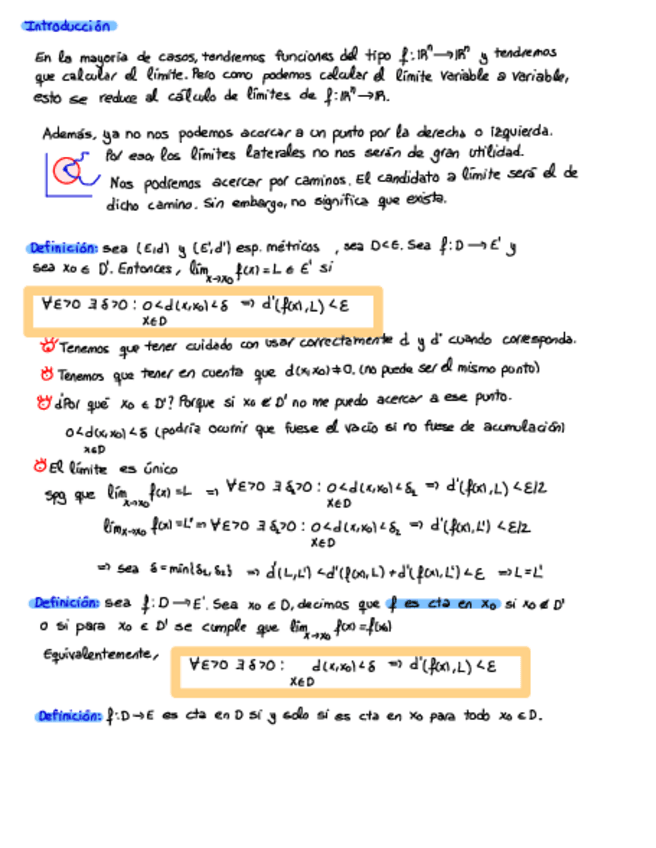 Introducción
En la mayoría de casos, tendremos funciones del tipo f: ℝⁿ → ℝⁿ y tendremos
que calcular el límite. Pero como podemos calcular el límite variable a variable,
esto se reduce al cálculo de límites de f: ℝⁿ → ℝ.
Además, ya no nos podemos acercar a un punto por la derecha o izquierda.
Por eso, los límites laterales no nos serán de gran utilidad.
Nos podremos acercar por caminos. El candidato a límite será el de
dicho camino. Sin embargo, no significa que exista.
Definición: sea (E,d) y (E',d') esp. métricos , sea D⊂E. Sea f: D → E' y
sea x₀ ∈ D'. Entonces, lim x→x₀ f(x) = L ∈ E' si
∀ε>0 ∃δ>0 : 0<d(x,x₀)<δ ⇒ d'(f(x),L)<ε
x∈D
Tenemos que tener cuidado con usar correctamente d y d' cuando corresponda.
Tenemos que tener en cuenta que d(x,x₀)≠0. (no puede ser el mismo punto)
¿Por qué x₀ ∈ D'? Porque si x₀ ∉ D' no me puedo acercar a ese punto.
0<d(x,x₀)<δ (podría ocurrir que fuese el vacío si no fuese de acumulación)
x∈D
El límite es único
spg que lim x→x₀ f(x) = L ⇒ ∀ε>0 ∃δ₁>0 : 0<d(x,x₀)<δ₂ ⇒ d'(f(x),L)<ε/2
x∈D
lim x→x₀ f(x) = L' ⇒ ∀ε>0 ∃δ₂>0 : 0<d(x,x₀)<δ₂ ⇒ d'(f(x),L')<ε/2
x∈D
⇒ sea δ = min{δ₁, δ₂} ⇒ d'(L,L')<d'(f(x),L)+d'(f(x),L')<ε ⇒ L=L'
Definición: sea f: D → E'. Sea x₀ ∈ D, decimos que f es cta en x₀ si x₀ ∉ D'
o si para x₀ ∈ D' se cumple que lim x→x₀ f(x) = f(x₀)
Equivalentemente,
∀ε>0 ∃δ>0 : d(x,x₀)<δ ⇒ d'(f(x),L)<ε
x∈D
Definición: f: D → E es cta en D si y solo si es cta en x₀ para todo x₀ ∈ D.